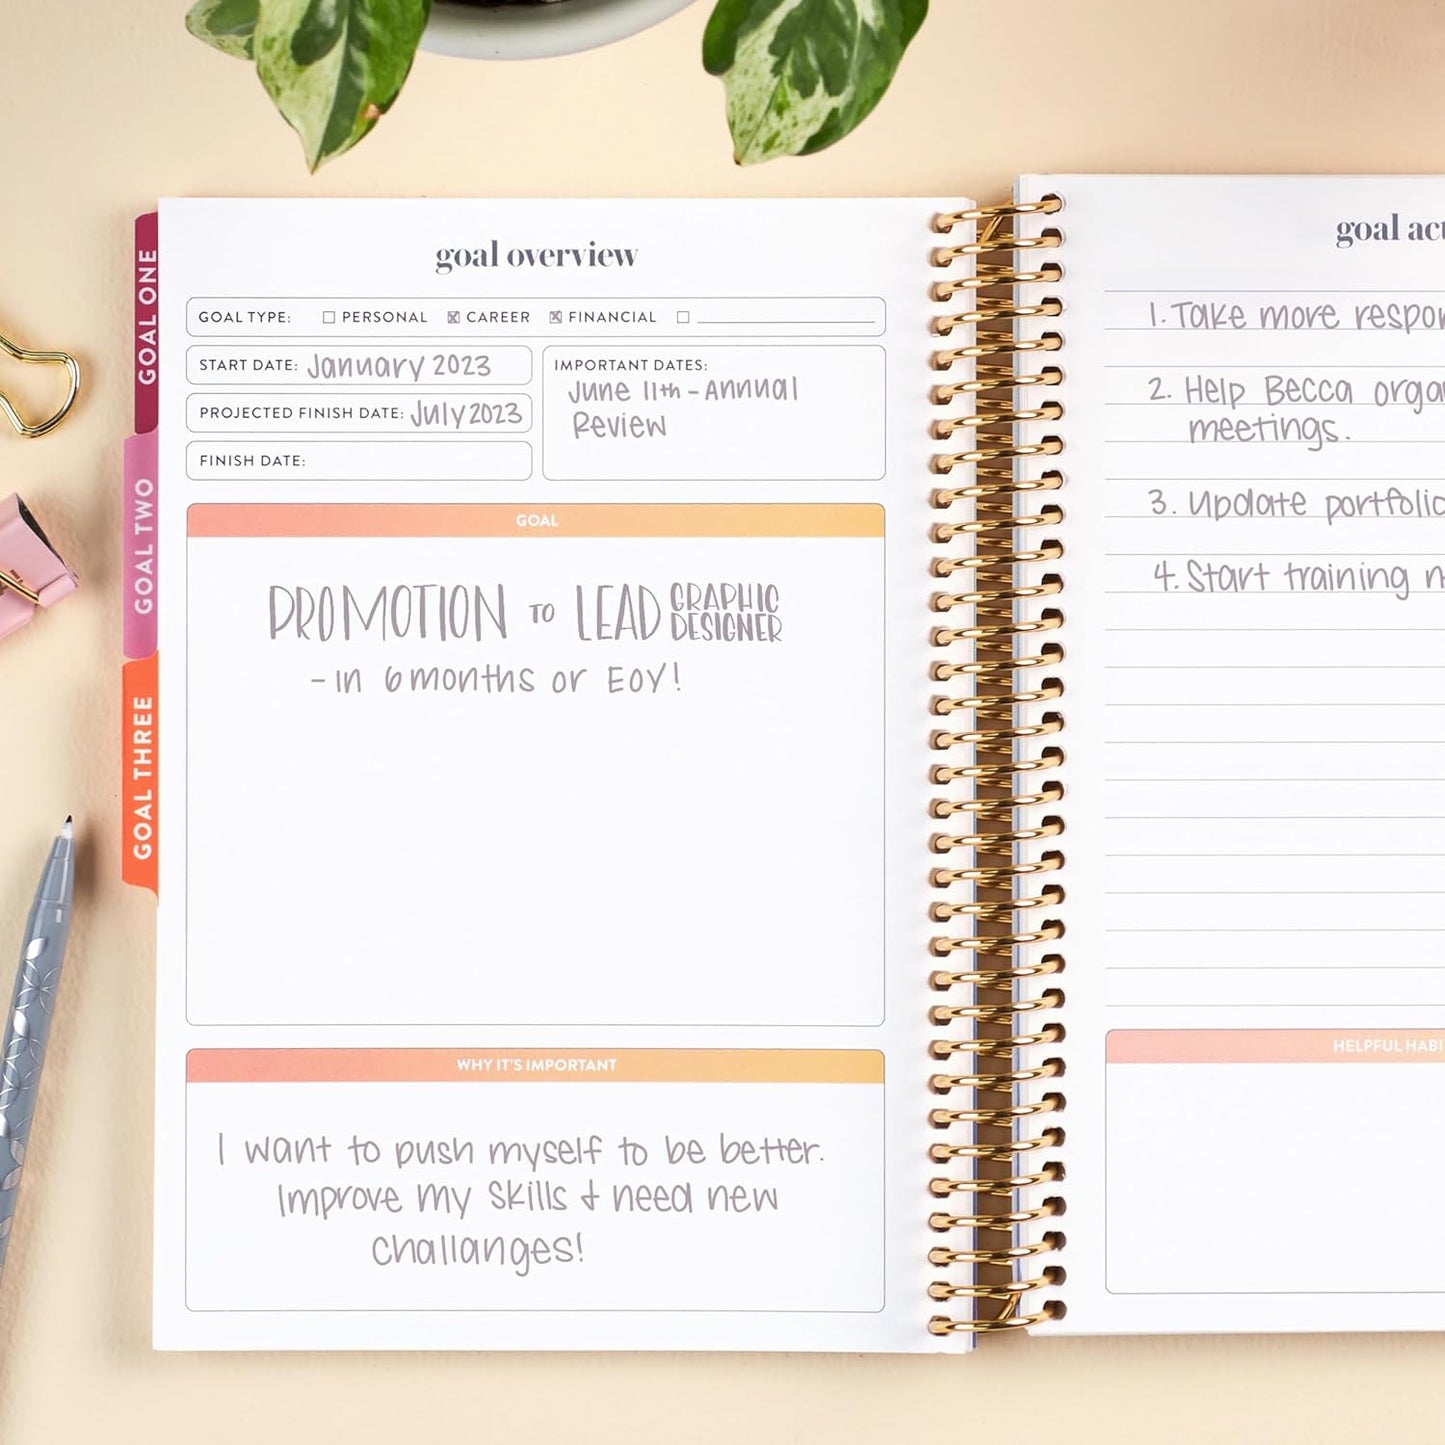 GOAL ONE
GOAL TWO
GOAL THREE
goal overview
GOAL TYPE: PERSONAL CAREER FINANCIAL
START DATE: January 2023
PROJECTED FINISH DATE: July 2023
FINISH DATE:
IMPORTANT DATES:
June 11th - Annual
Review
GOAL
PROMOTION TO LEAD GRAPHIC DESIGNER
- in 6 months or EOY!
WHY IT'S IMPORTANT
I want to push myself to be better.
Improve my skills & need new
challanges!
goal
1. Take more
2. Help Becca
meetings.
3. Update
4. Start training
HELPFUL